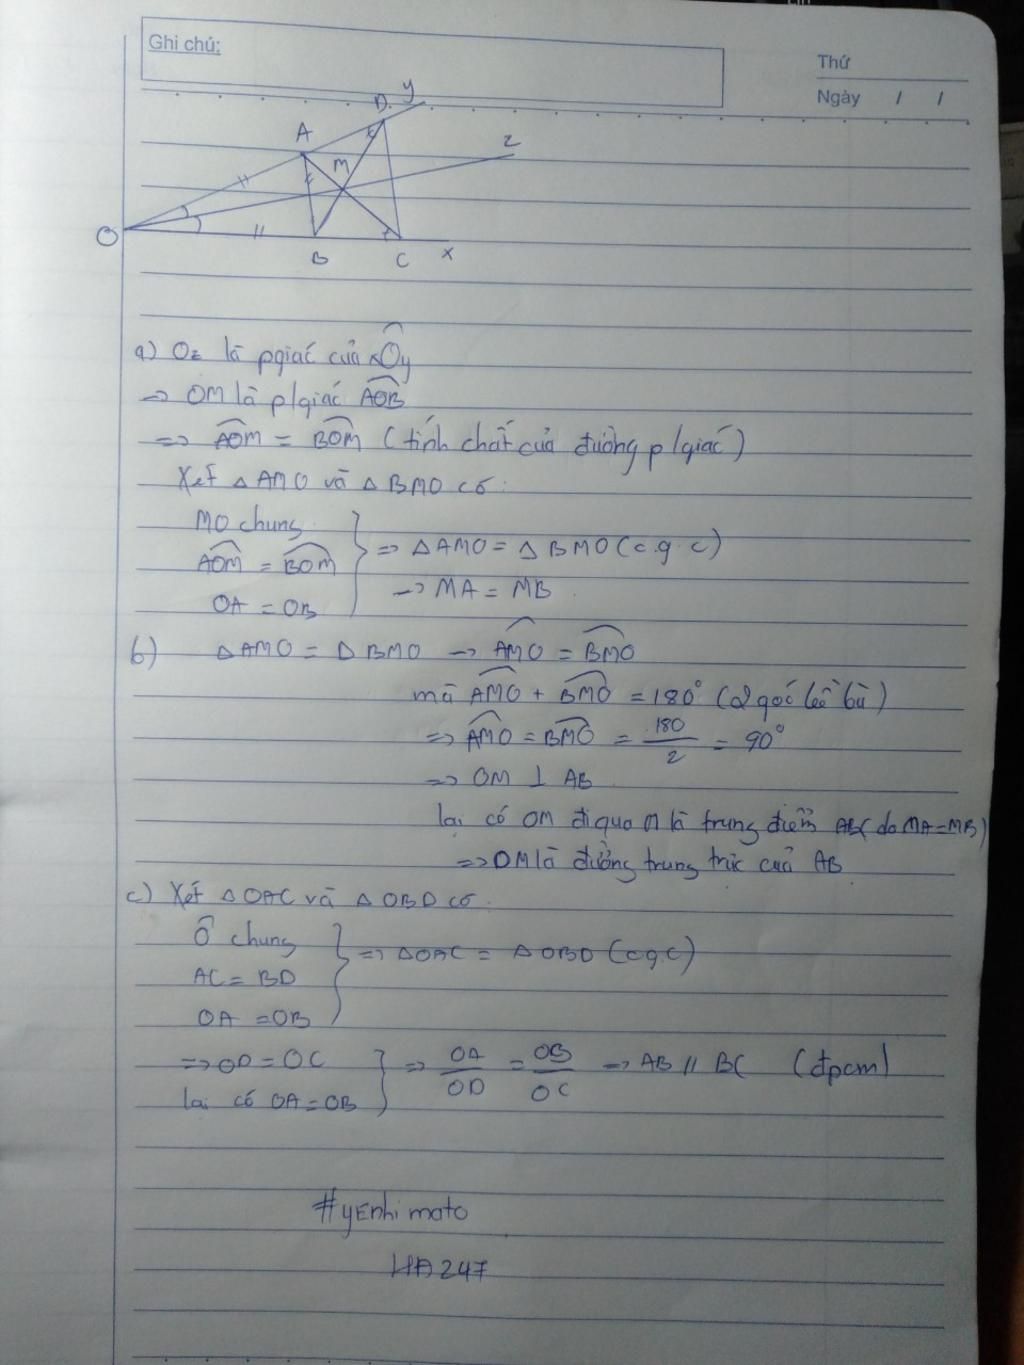 Ghi chú:
Thứ
Ngày / /
y
D
A
z
M
O
B
C
x
a) Oz là pgiác của xOy
→ OM là p/giác AOB
=> AOM = BOM (tính chất của đường p/giác)
Xét △AMO và △BMO có:
MO chung
AOM = BOM } => △AMO = △BMO (c.g.c)
OA = OB → MA = MB
b) △AMO = △BMO → AMO = BMO
mà AMO + BMO = 180° (2 góc kề bù)
=> AMO = BMO = 180/2 = 90°
=> OM ⊥ AB
lại có OM đi qua M là trung điểm AB (do MA=MB)
=> OM là đường trung trực của AB
c) Xét △OAC và △OBD có:
Ô chung } => △OAC = △OBD (c.g.c)
AC = BD
OA = OB
=> OD = OC } => OA/OD = OB/OC → AB // BC (đpcm)
lại có OA = OB
#yenhimato
HA247